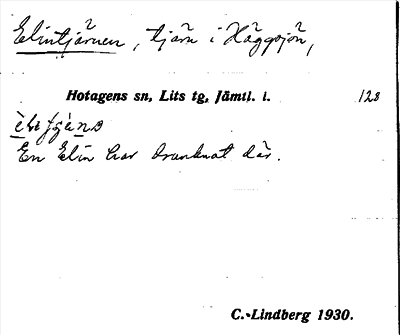 Elintjärnen, tjärn i Häggsjön,
Hotagens sn, Lits tg, Jämtl. l. 128
En Elin har drunknat där.
C. Lindberg 1930.